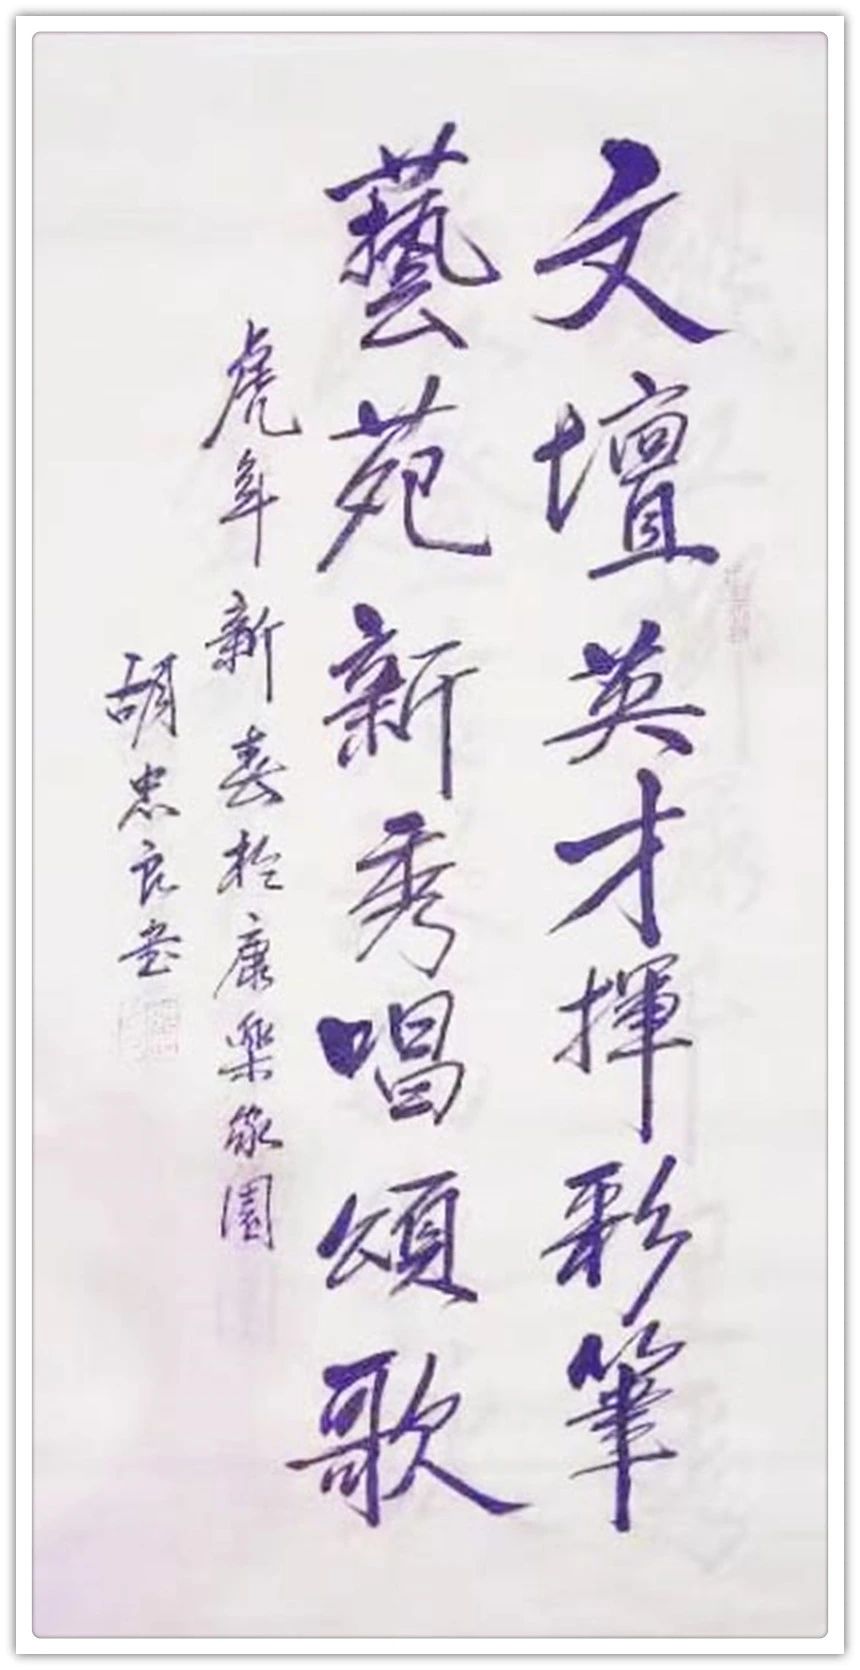 文壇英才揮彩筆
藝苑新秀唱頌歌
虎年新春於康樂家園
胡忠良書